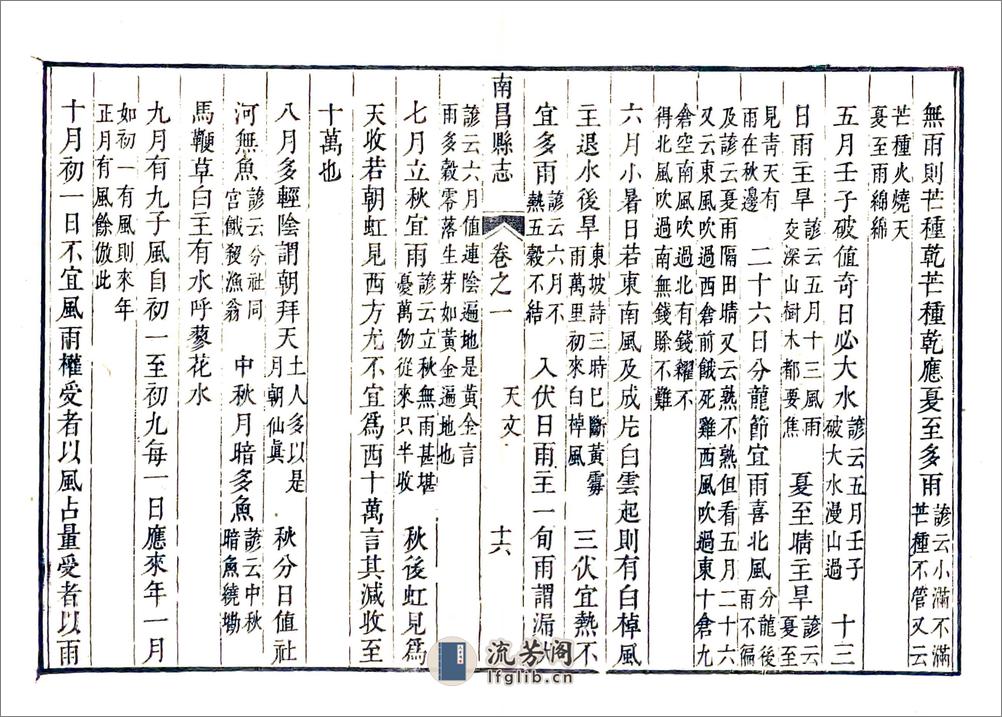 無雨則芒種乾芒種乾應夏至多雨諺云小滿不滿芒種不管又云
芒種火燒天夏至雨綿綿
五月壬子破值奇日必大水諺云五月壬子破大水漫山過 十三
日雨主旱諺云五月十三風雨交深山樹木都要焦 夏至晴主旱諺云夏至
見青天有雨在秋邊 二十六日分龍節宜雨喜北風分龍後雨不徧
及諺云夏雨隔田晴又云熟不熟但看五月二十六
又云東風吹過西倉前餓死雞西風吹過東十倉九
倉空南風吹過北有錢糴不
得北風吹過南無錢賒不難
六月小暑日若東南風及成片白雲起則有白棹風
主退水後旱東坡詩三時已斷黃霉雨萬里初來白棹風 三伏宜熱不
宜多雨諺云六月不熱五穀不結 入伏日雨主一旬雨謂漏伏
南昌縣志 卷之一 天文 十六
諺云六月值連陰遍地是黃金言
雨多穀零落生芽如黃金遍地也
七月立秋宜雨諺云立秋無雨甚堪憂萬物從來只半收 秋後虹見爲
天收若朝虹見西方尤不宜爲西十萬言其減收至
十萬也
八月多輕陰謂朝拜天土人多以是月朝仙眞 秋分日值社
河無魚諺云分社同宮餓殺漁翁 中秋月暗多魚諺云中秋暗魚繞塮
馬鞭草白主有水呼蓼花水
九月有九子風自初一至初九每一日應來年一月
如初一有風則來年
正月有風餘倣此
十月初一日不宜風雨權受者以風占量受者以雨
流芳阁
lfglib.cn